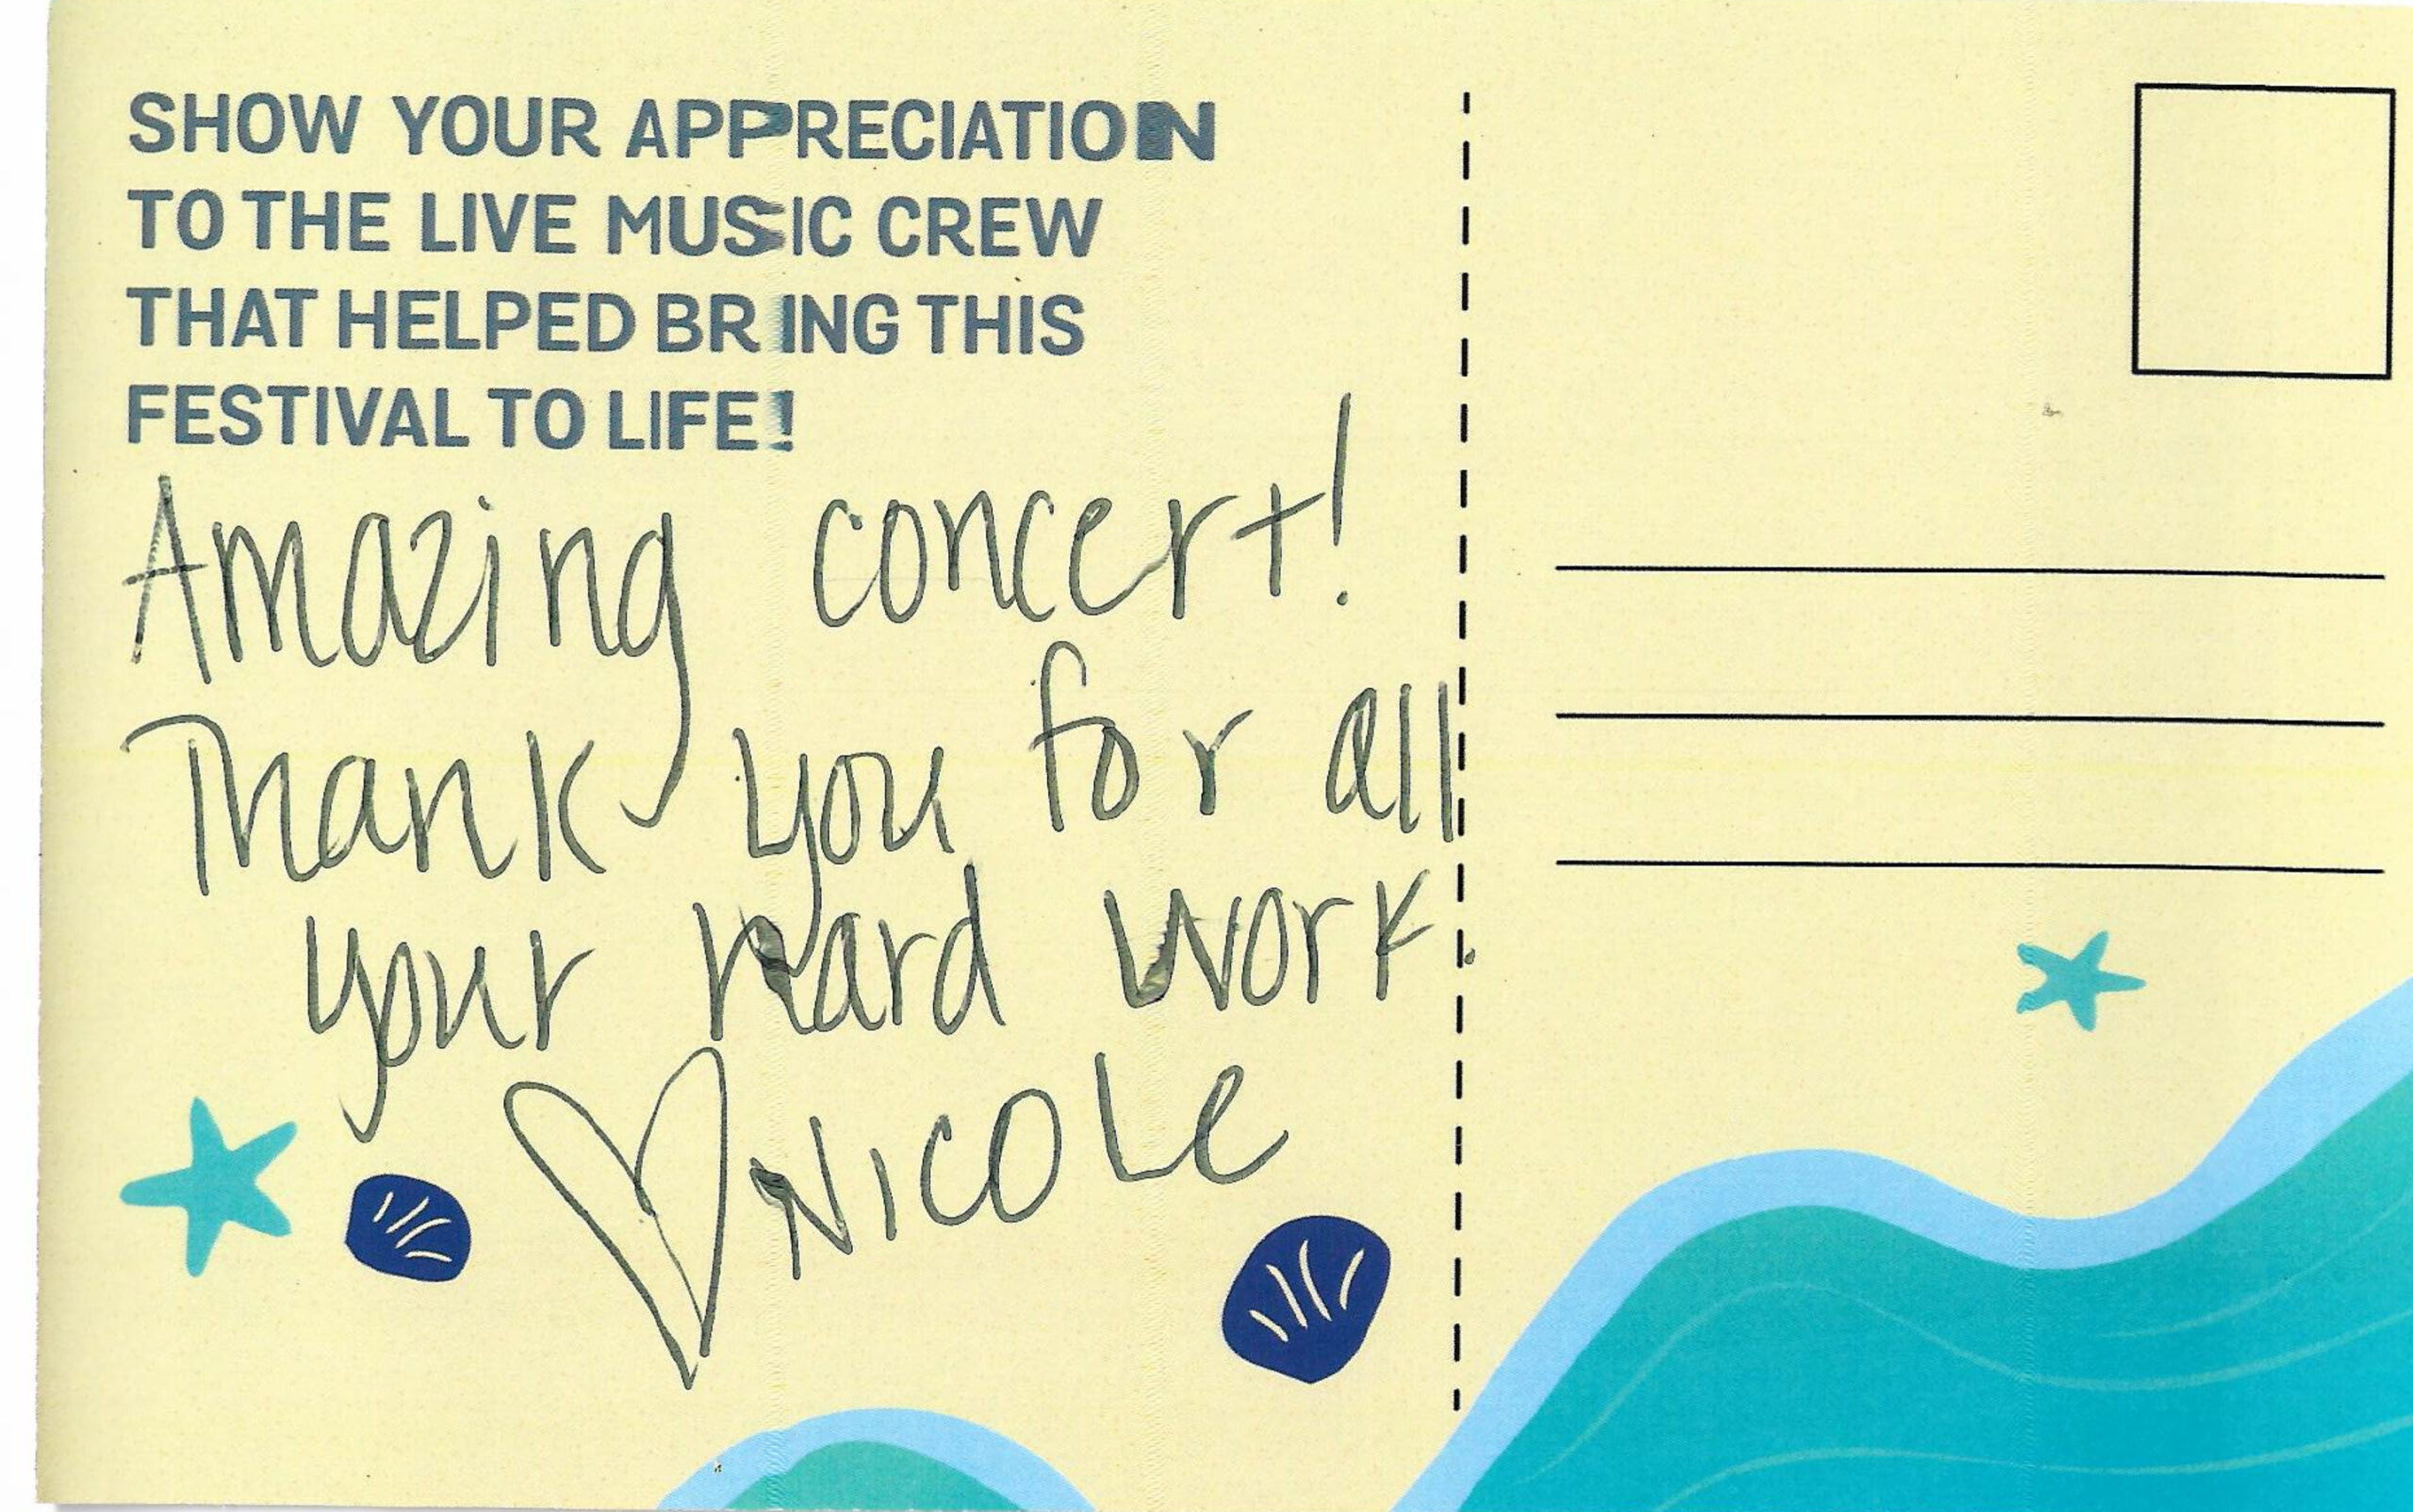 SHOW YOUR APPRECIATION
TO THE LIVE MUSIC CREW
THAT HELPED BRING THIS
FESTIVAL TO LIFE!
Amazing concert!
Thank you for all
your hard work.
♡NICOLe